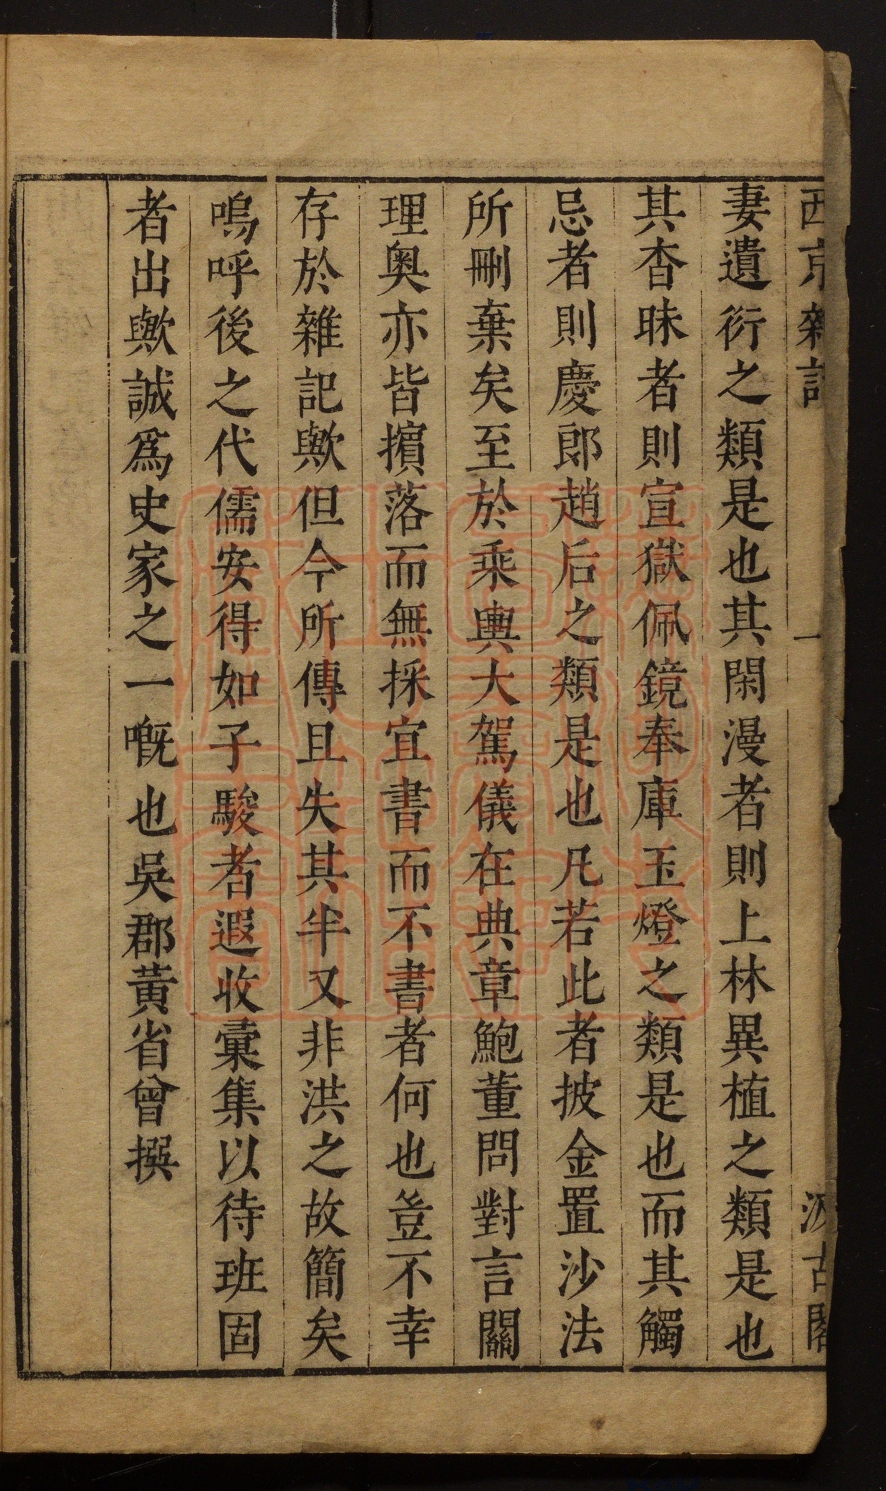 西京雜記 一 汲古閣
妻遺衍之類是也其閑漫者則上林異植之類是也
其杳昧者則宣獄佩鏡奉庫玉燈之類是也而其觸
忌者則慶郎趙后之類是也凡若此者披金置沙法
所刪棄矣至於乘輿大駕儀在典章鮑董問對言關
理奧亦皆擯落而無採宜書而不書者何也豈不幸
存於雜記歟但今所傳且失其半又非洪之故簡矣
嗚呼後之代儒安得如子駿者遐收彙集以待班固
者出歟誠爲史家之一嘅也吳郡黄省曾撰